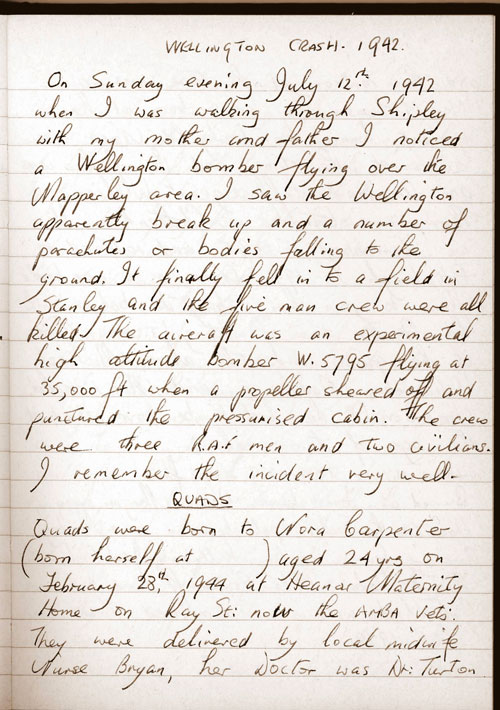 WELLINGTON CRASH. 1942.
On Sunday evening July 12th. 1942
when I was walking through Shipley
with my mother and father I noticed
a Wellington bomber flying over the
Mapperley area. I saw the Wellington
apparently break up and a number of
parachutes or bodies falling to the
ground. It finally fell in to a field in
Stanley and the five man crew were all
killed. The aircraft was an experimental
high altitude bomber W.5795 flying at
35,000 ft when a propeller sheared off and
punctured the pressurised cabin. The crew
were three R.A.F men and two civilians.
I remember the incident very well.
QUADS
Quads were born to Nora Carpenter
(born herself at ) aged 24 yrs on
February 28th, 1944 at Heanor Maternity
Home on Ray St: now the AMBA vets.
They were delivered by local midwife
Nurse Bryan, her Doctor was Dr: Turton